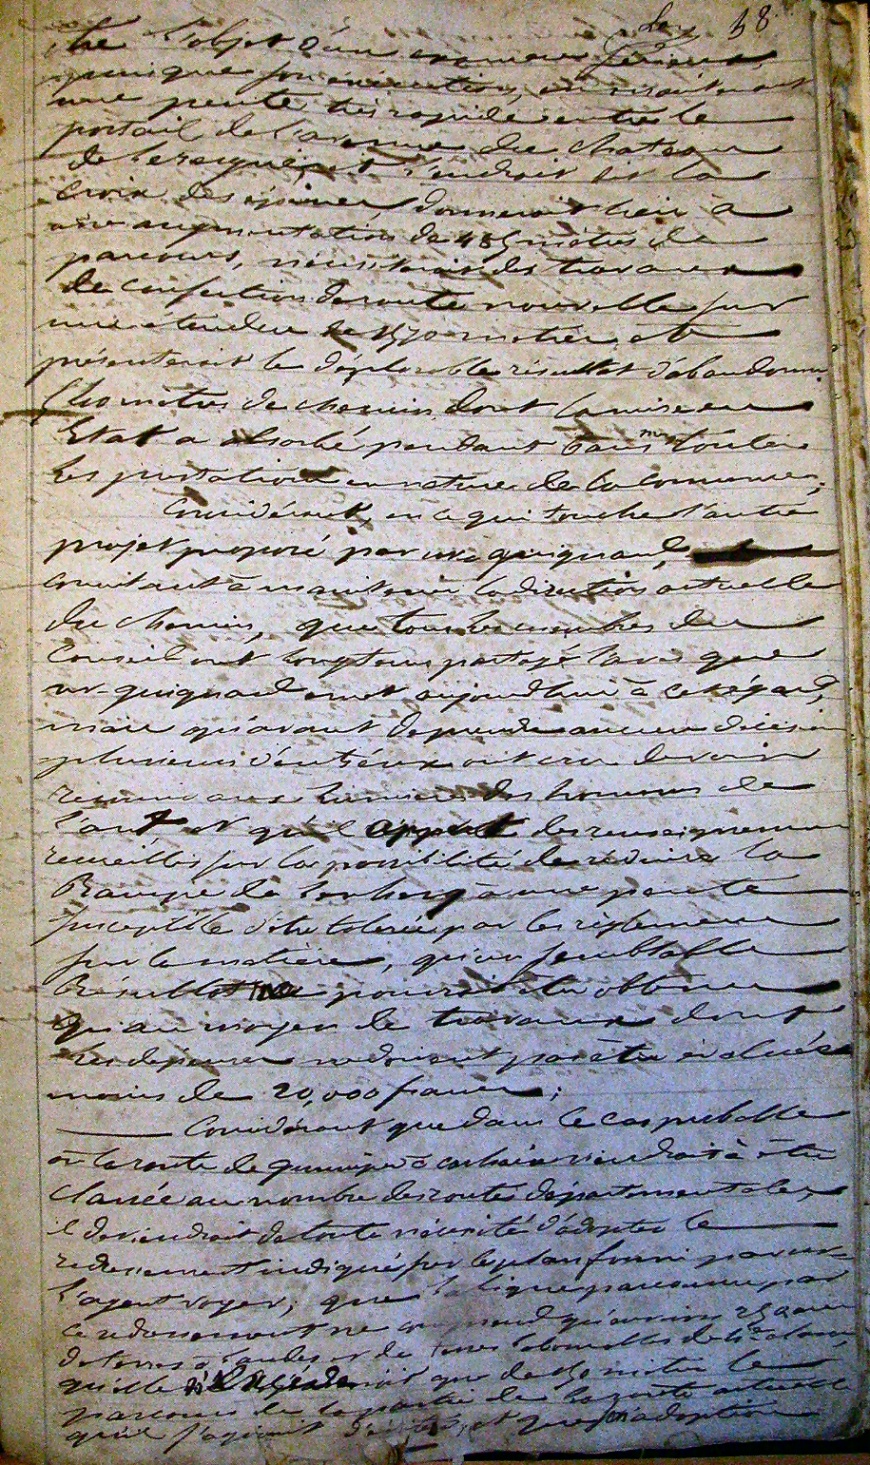 58
être l'objet d'un examen sérieux,
puisque son exécution, en
une pente très rapide entre le
portail de l'avenue du chateau
de et l'endroit dit la
Croix des donnerait lieu à
une augmentation de 485 mètres de
parcours, nécessiterait des travaux
de confection de route nouvelle sur
une étendue de mètres et
présenterait le déplorable résultat d'abandonner
mètres de chemin dont la mise en
Etat a absorbé pendant ans toutes
les prestations en nature de la commune;
Considérant, en ce qui touche l'autre
projet proposé par mr quignard,
consistant à maintenir la direction actuelle
du chemin, que tous les membres du
Conseil ont longtems partagé l'avis que
mr quignard émet aujourd'hui à cet égard,
mais qu'avant de prendre aucune décision
plusieurs d'entr'eux ont cru devoir
recourir aux lumières des hommes de
l'art et qu'il appert des renseignemens
recueillis sur la possibilité de réduire la
Rampe de à une pente
susceptible d'être tolérée par les règlemens
sur la matière, qu'un semblable
Résultat ne pourrait être obtenu
qu'au moyen de travaux dont
les dépenses ne doivent pas être évaluées
moins de 20,000 francs;
Considérant que dans le cas probable
où la route de quimper à carhaix viendrait à être
classée au nombre des routes départementales,
il deviendrait de toute nécessité d'adopter le
redressement indiqué par le plan fourni par mr
l'agent voyer; que la ligne parcourue par
ce redressement ne comprend qu'environ 25 ares
de terres à landes et de terres labourables de classe,
qu'elle que de 150 mètres le
parcours de la partie de la route actuelle
qu'il s'agirait d'éviter, et que son adoption